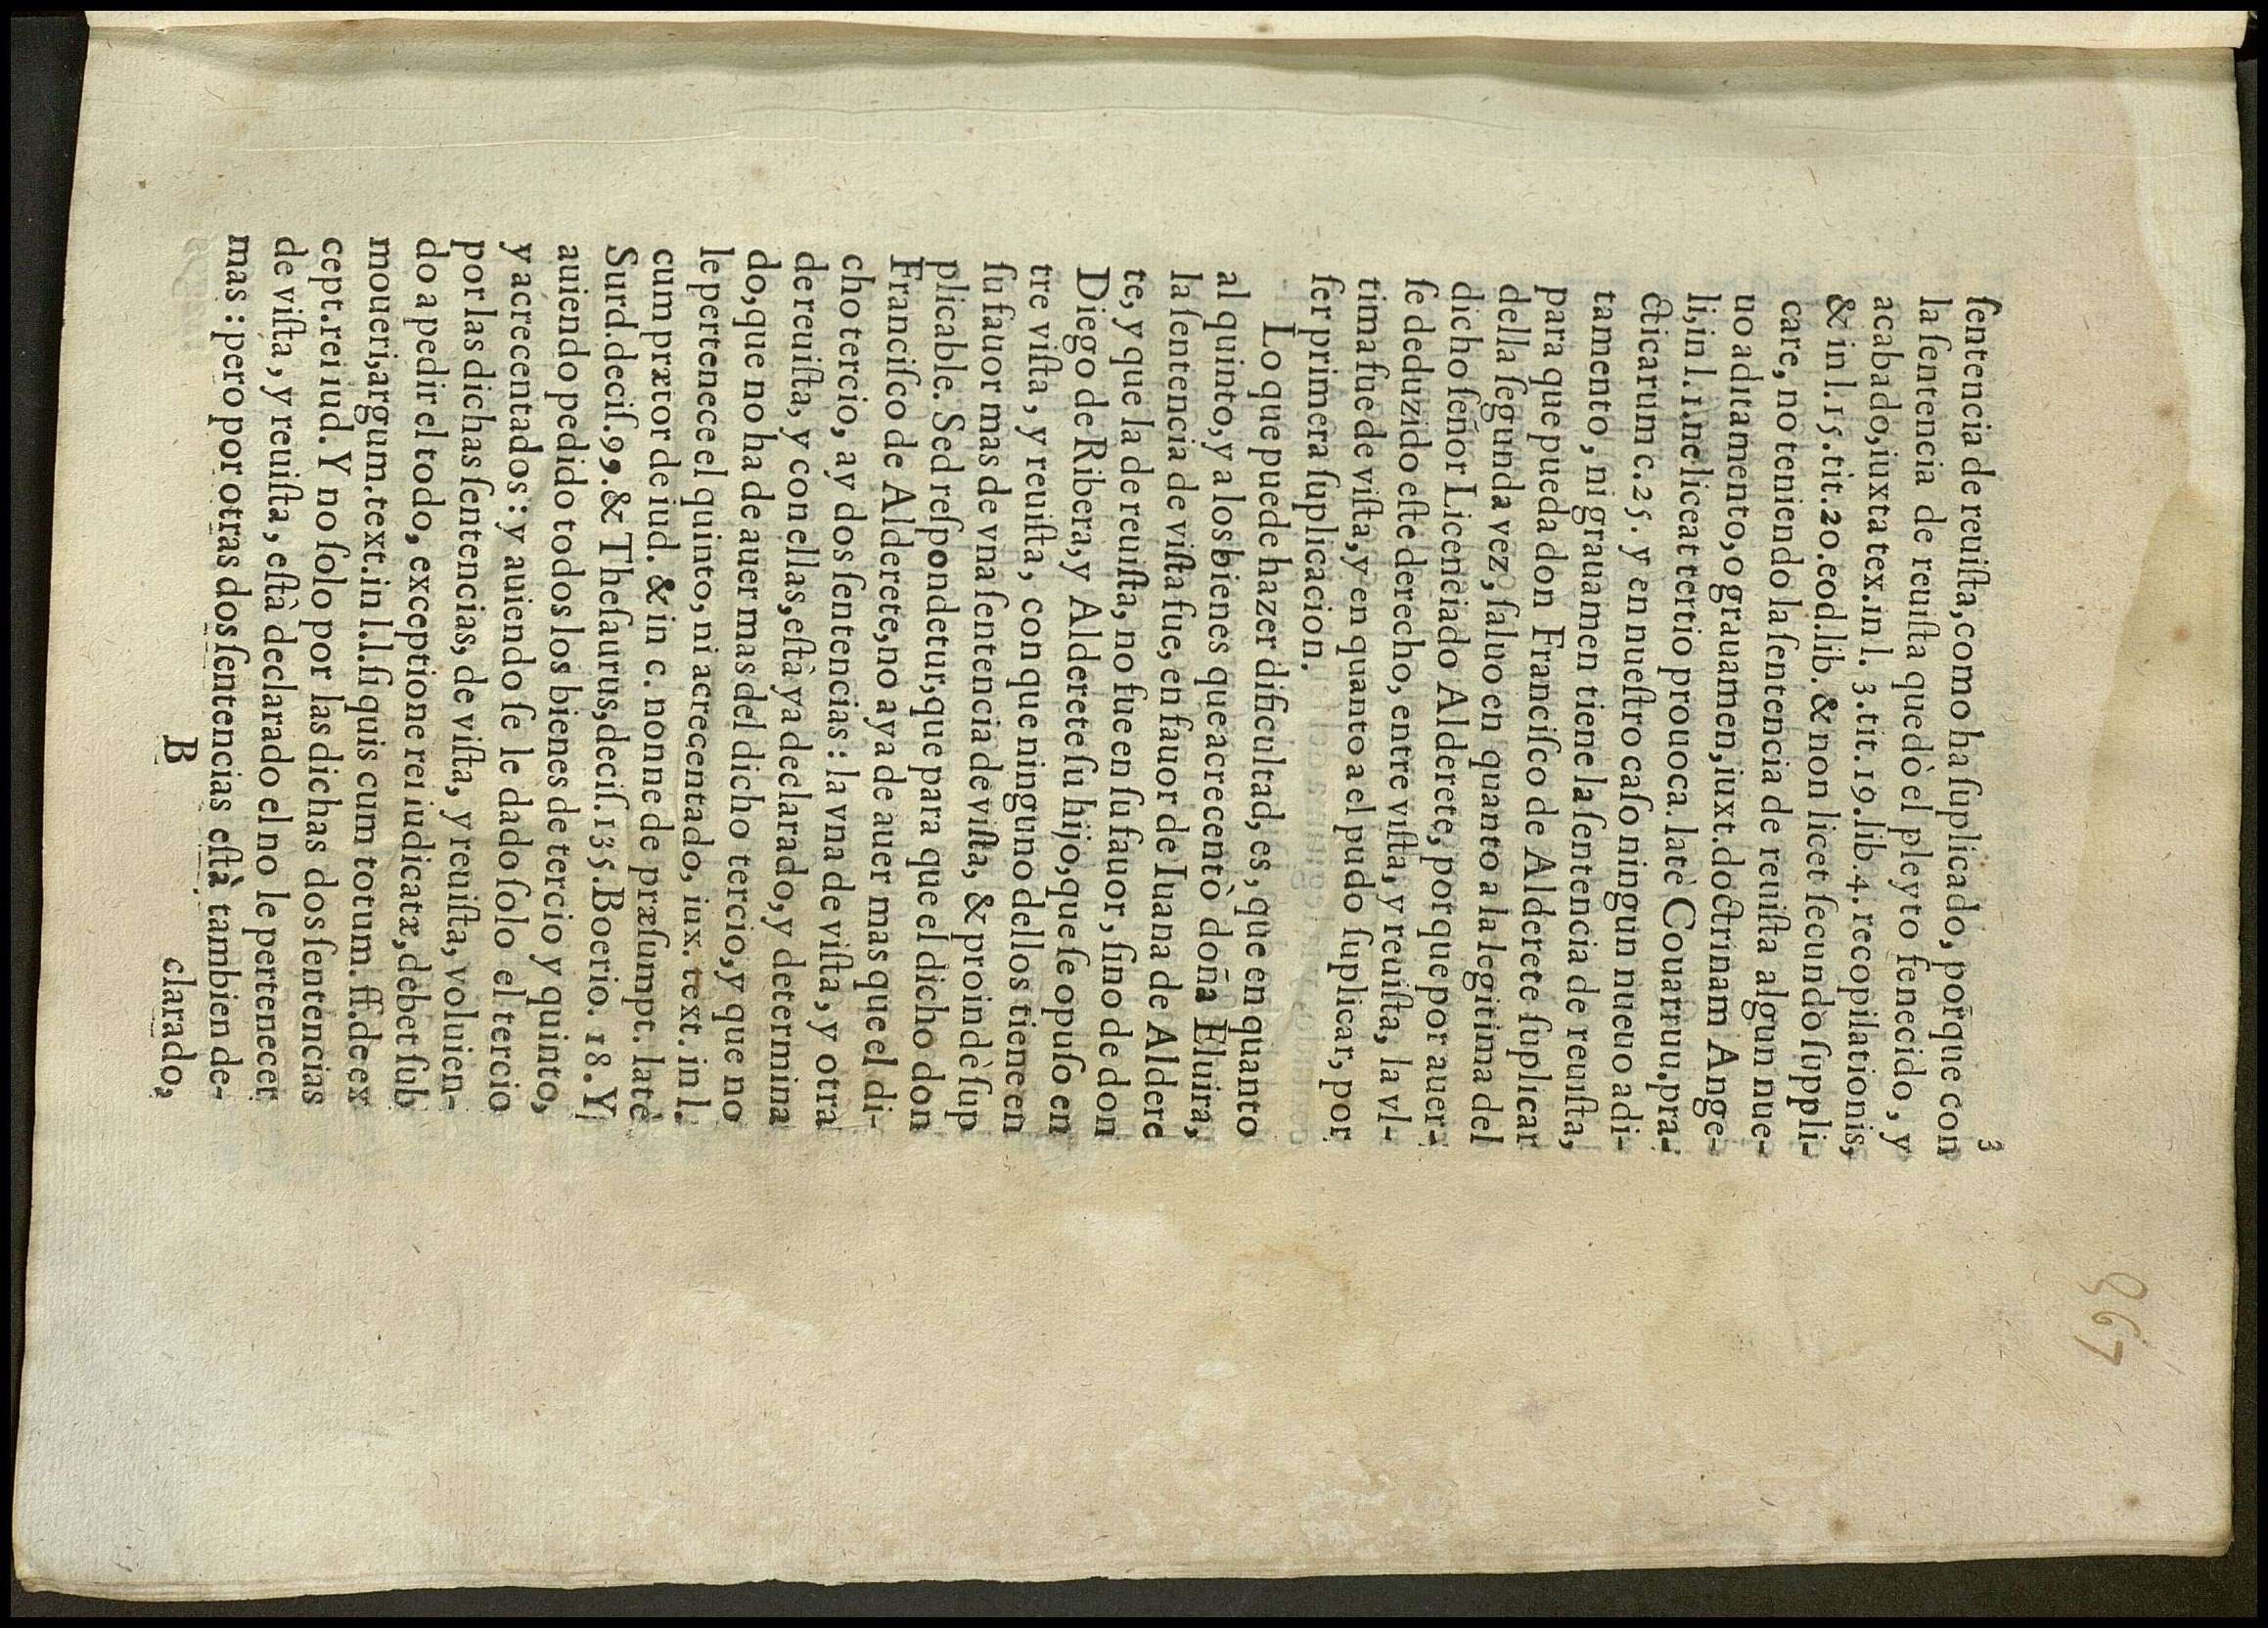 3
967
ſentencia de reuiſta, como ha ſuplicado, porque con
la ſentencia de reuiſta quedò el pleyto fenecido, y
acabado, iuxta tex. in l. 3. tit. 19. lib. 4. recopilationis,
& in l. 15. tit. 20. eod. lib. & non licet ſecundo ſuppli-
care, no teniendo la ſentencia de reuiſta algun nue-
uo aditamento, o grauamen, iuxt. doctrinam Ange-
li, in l. 1. ne liceat tertio prouoca. latè Couarruu. pra-
cticarum c. 25. y en nueſtro caſo ningun nueuo adi-
tamento, ni grauamen tiene la ſentencia de reuiſta,
para que pueda don Franciſco de Alderete ſuplicar
della ſegunda vez, ſaluo en quanto a la legitima del
dicho ſeñor Licenciado Alderete, porque por auer-
ſe deduzido eſte derecho, entre viſta, y reuiſta, la vl-
tima fue de viſta, y en quanto a el pudo ſuplicar, por
ſer primera ſuplicacion.
Lo que puede hazer dificultad, es, que en quanto
al quinto, y a los bienes que acrecentò doña Eluira,
la ſentencia de viſta fue, en fauor de Iuana de Aldere
te, y que la de reuiſta, no fue en ſu fauor, ſino de don
Diego de Ribera, y Alderete ſu hijo, que ſe opuſo en
tre viſta, y reuiſta, con que ninguno dellos tiene en
ſu fauor mas de vna ſentencia de viſta, & proindè ſup
plicable. Sed reſpondetur, que para que el dicho don
Franciſco de Alderete, no aya de auer mas que el di-
cho tercio, ay dos ſentencias: la vna de viſta, y otra
de reuiſta, y con ellas, eſtà ya declarado, y determina
do, que no ha de auer mas del dicho tercio, y que no
le pertenece el quinto, ni acrecentado, iux. text. in l.
cum prætor de iud. & in c. nonne de præſumpt. latè
Surd. deciſ. 99. & Theſaurus, deciſ. 135. Boerio. 18. Y
auiendo pedido todos los bienes de tercio y quinto,
y acrecentados: y auiendo ſe le dado ſolo el tercio
por las dichas ſentencias, de viſta, y reuiſta, voluien-
do a pedir el todo, exceptione rei iudicatæ, debet ſub
moueri, argum. text. in l. l. ſi quis cum totum. ff. de ex
cept. rei iud. Y no ſolo por las dichas dos ſentencias
de viſta, y reuiſta, eſtà declarado el no le pertenecer
mas: pero por otras dos ſentencias eſtà tambien de-
B
clarado,